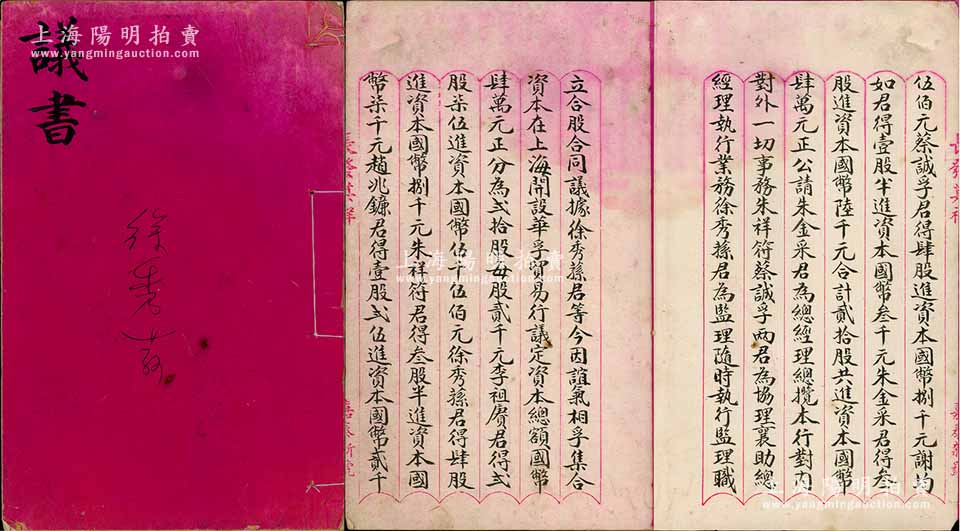 議書
徐秀蓀
立合股合同議據徐秀蓀君等今因誼氣相孚集合
資本在上海開設華孚貿易行議定資本總額國幣
肆萬元正分為弍拾股每股貳千元李祖賡君得弍
股柒伍進資本國幣伍千伍佰元徐秀蓀君得肆股
進資本國幣捌千元朱祥符君得叁股半進資本國
幣柒千元趙兆鐮君得壹股弍伍進資本國幣貳千
伍佰元蔡誠孚君得肆股進資本國幣捌千元謝均
如君得壹股半進資本國幣叁千元朱金采君得叁
股進資本國幣陸千元合計貳拾股共進資本國幣
肆萬元正公請朱金采君為總經理總攬本行對內
對外一切事務朱祥符蔡誠孚两君為協理襄助總
經理執行業務徐秀蓀君為監理隨時執行監理職
長發其祥
上海陽明拍賣
www.yangmingauction.com
上海陽明拍賣
www.yangmingauction.com
上海陽明拍賣
www.yangmingauction.com
上海陽明拍賣
www.yangmingauction.com